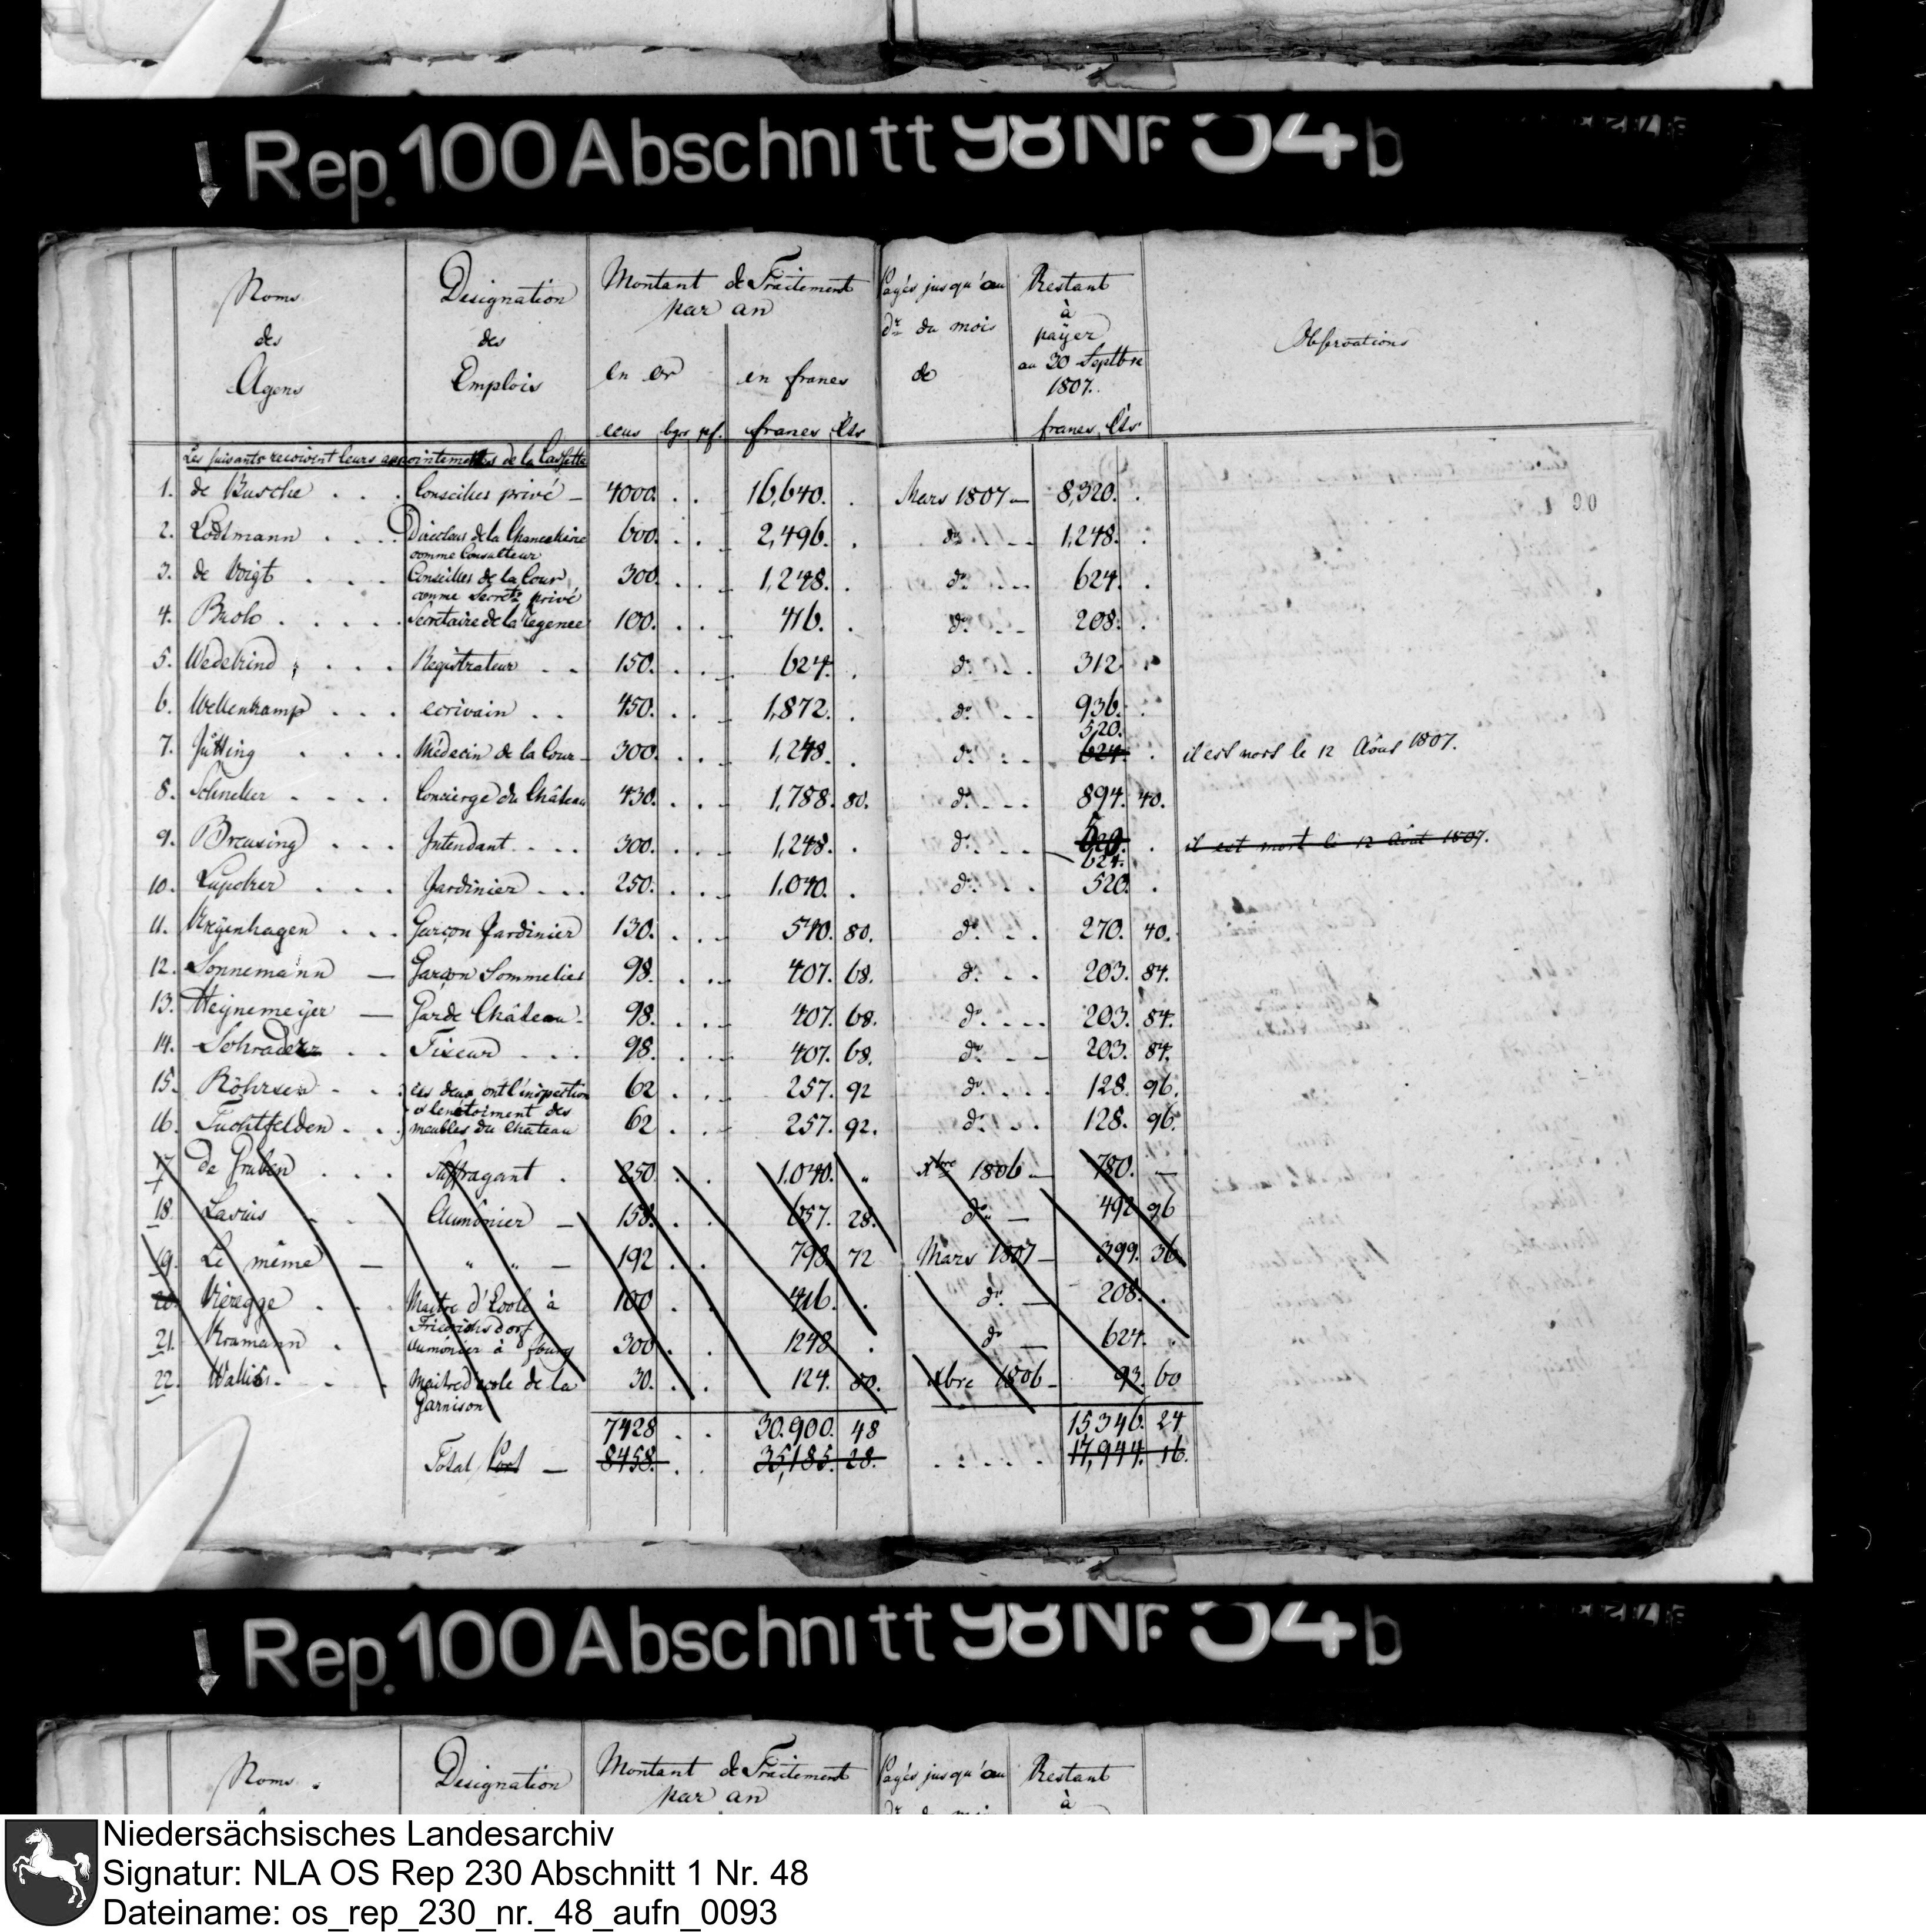 Rep. 100 Abschnitt 98 Nr. 54 b
Noms des Agens
Désignation des Emplois
Montant de Traitement par an
en or
en francs
ecus bgr pf. francs Cts
Payés jusqu'au dr. du mois de
Restant à payer au 30 Septbre 1807.
francs, Cts
Observations
Les suisants recoivent leurs appointements de la Cassette
1. de Busche . . . Conseiller privé — 4000. . . 16,640. . Mars 1807 — 8,320. .
2. Lodtmann . . . Directeur de la Chancellerie comme Consulteur 600. . . 2,496. . do. 1,248. .
3. de Voigt . . . Conseiller de la Cour comme Secret. privé 300. . . 1,248. . do. 624. .
4. Buch . . . . Secretaire de la regence 100. . . 416. . do. 208. .
5. Wedekind . . . Registrateur . . 150. . . 624. . do. 312 .
6. Wellenkamp . . . ecrivain . . 450. . . 1,872. . do. 936. .
7. Jütting . . . Médecin de la Cour — 300. . . 1,248. . do. 520. 624. . il est mort le 12 Aôut 1807.
8. Schneller . . . . Concierge du Château 430. . . 1,788. 80. do. 894. 40.
9. Breusing . . . Intendant . . . 300. . . 1,248. . do. 520. 624. . il est mort le 12 Aôut 1807.
10. . . . Jardinier . . . 250. . . 1,040. . do. 520. .
11. Kreyenhagen . . . Garçon Jardinier 130. . . 540. 80. do. 270. 40.
12. Sonnemann — Garçon Sommelier 98. . . 407. 68. do. 203. 84.
13. Heynemeÿer — Garde Château . 98. . . 407. 68. do. 203. 84.
14. Schrader . . 98. . . 407. 68. do. — 203. 84.
15. Röhrsen . . . } ces deux ont l'inspection 62 . . 257. 92 do. 128. 96.
et le nettoiment des
16. Tuchtfelden . . . } meubles du Château 62 . . 257. 92. do. 128. 96.
17 de Gruben . . . Suffragant . 250 . . 1.040. " Xbre 1806 — 780. —
18 Lasius . . Aumônier — 158. . . 657. 28. do. — 492 96
19. Le même — " " — 192 . . 798. 72 Mars 1807 — 399. 36
20. Vieregge . . Maitre d'Ecole à Friedrichsdorf 100 . . 416. . do. — 208. .
21. Kramann . Aumônier à fourg 300 . . 1248 . do — 624. .
22. Wallis . . . Maitre d'ecole de la Garnison 30. . . 124. 80. Xbre 1806 — 93. 60
7428 . . 30.900. 48 15.346. 24
Total — 8458. . . 35,185. 28. . . . . . 17,944. 16.
Rep. 100 Abschnitt 98 Nr. 54 b
Noms . Désignation Montant de Traitement par an Payés jusqu'au Restant à
Niedersächsisches Landesarchiv
Signatur: NLA OS Rep 230 Abschnitt 1 Nr. 48
Dateiname: os_rep_230_nr._48_aufn_0093